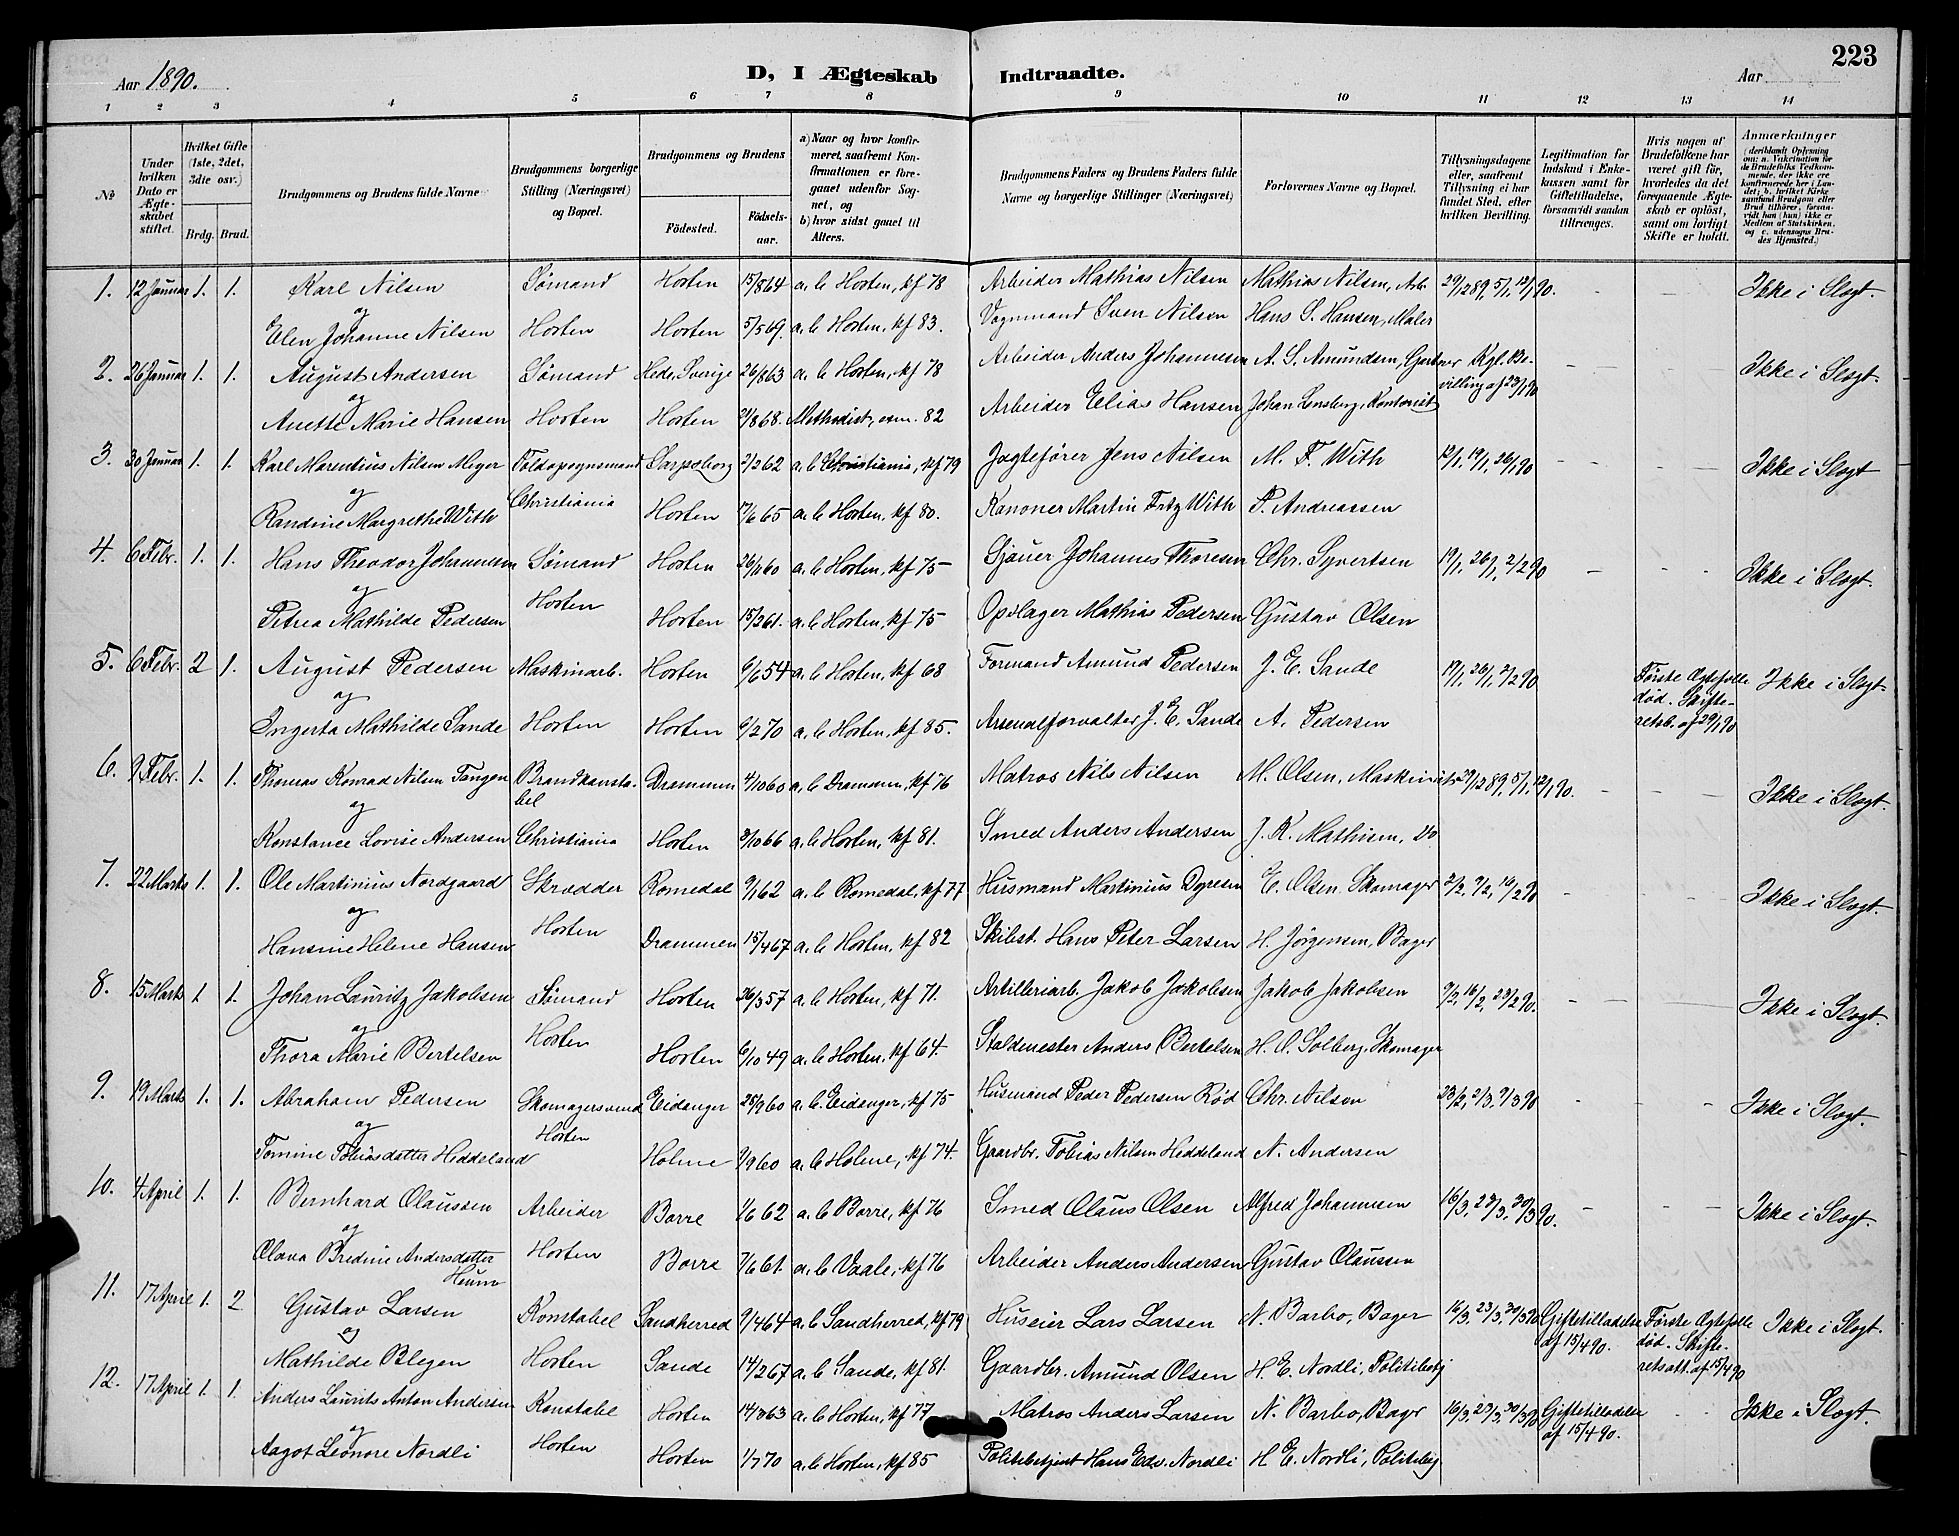 223
Aar 1890.
D, I Ægteskab Indtraadte.
Aar
1 2 3 4 5 6 7 8 9 10 11 12 13 14
No
Under hvilken Dato er Ægteskabet stiftet.
Hvilket Gifte (1ste, 2det, 3die osv.)
Brdg. Brud.
Brudgommens og Brudens fulde Navne
Brudgommens borgerlige Stilling (Næringsvei) og Bopæl.
Brudgommens og Brudens
Fødested. Fødselsaar.
a) Naar og hvor konfirmeret, saafremt Konfirmationen er foregaaet udenfor Sognet, og b) hvor sidst gaaet til Alters.
Brudgommens Faders og Brudens Faders fulde Navne og borgerlige Stillinger (Næringsvei)
Forlovernes Navne og Bopæl.
Tillysningsdagene eller, saafremt Tillysning ei har fundet Sted, efter hvilken Bevilling.
Legitimation for Indskud i Enkekassen samt for Giftetilladelse, forsaavidt saadan tiltrænges.
Hvis nogen af Brudefolkene har været gift før, hvorledes da det foregaaende Ægteskab er opløst, samt om lovligt Skifte er holdt.
Anmærkninger (deriblandt Oplysning om: a. Vakcination for de Brudefolks Vedkommende, der ikke ere konfirmerede her i Landet; b. hvilket Kirkesamfund Brudgom eller Brud tilhører, forsaavidt han (hun) ikke er Medlem af Statskirken, og c. udensogns Brudes Hjemsted.)
1. 12 Januar 1. 1. Karl Nilsen Sømand Horten 15/8 64 a. b Horten, kf 78 Arbeider Mathias Nilsen Mathias Nilsen, Arb. 29/12 89, 5/1, 12/1 90. - - Ikke i Slægt.
og
Elen Johanne Nilsen Horten Horten 5/5 69. a. b Horten, kf 83. Vognmand Sven Nilsen Hans S. Hansen, Maler
2. 26 Januar 1. 1. August Andersen Sømand Hede, Sverige 26/8 63 a. b Horten, kf 78 Arbeider Anders Johannesen A. S. Amundsen, Gartner Kgl. Bevilling af 23/1 90 - - - Ikke i Slægt.
og
Anette Marie Hansen Horten Horten 21/8 68. Methodist, 82 Arbeider Elias Hansen Johan Lensberg, Kontorist
3. 30 Januar 1. 1. Karl Marentius Nilsen Meyer Toldopsynsmand Sarpsborg 2/2 62 a. b Christiania, kf 79 Jagtefører Jens Nilsen M. F. With 12/1, 19/1, 26/1 90 - - - Ikke i Slægt
og Christiania
Randine Margrethe With Horten 17/6 65 a. b Horten, kf 80. Kanoner Martin Fritz With P. Andreassen
4. 6 Febr. 1. 1. Hans Theodor Johannesen Sømand Horten 26/11 60 a. b Horten, kf 75 Sjauer Johannes Thoresen Chr. Syvertsen 19/1, 26/1, 2/2 90 - - - Ikke i Slægt.
og Horten
Petrea Mathilde Pedersen Horten 15/2 61. a. b Horten, kf 75 Opslager Mathias Pedersen Gustav Olsen
5. 6 Febr. 2 1. August Pedersen Maskinarb. Horten 6/6 54 a. b Horten, kf 68 Formand Amund Pedersen J. E. Sande 19/1, 26/1, 2/2 90 Første Ægtefælle død. Skifteretsb. af 29/1 90 Ikke i Slægt
og
Ingerta Mathilde Sande Horten Horten 6/2 70 a. b Horten, kf 85. Arsenalforvalter J. E. Sande A. Pedersen
6. 9 Febr. 1. 1. Thomas Konrad Nilsen Tangen Brandkonstabel Drammen 4/10 60 a. b Drammen, kf 76 Matros Nils Nilsen M. Olsen, Maskinist 29/12 89, 5/1, 12/1 90. - - - Ikke i Slægt.
og
Konstance Lovise Andersen Christiania Horten 3/10 66 a. b Horten, kf 81. Smed Anders Andersen J. K. Mathisen, Do
7. 22 Marts 1. 1. Ole Martinius Nordgaard Skrædder Romedal 9/1 62 a. b Romedal, kf 77 Husmand Martinius Dyresen E. Olsen, Skomager 2/2, 9/2, 16/2 90 - - - Ikke i Slægt.
og Horten
Hansine Helene Hansen Drammen 15/4 67 a. b Horten, kf 82 Skibst. Hans Peter Larsen H. Jørgensen, Bager
8. 15 Marts 1 1. Johan Lauritz Jakobsen Sømand Horten 26/3 57 a. b Horten, kf 71. Artilleriarb. Jakob Jakobsen Jakob Jakobsen 9/2, 16/2, 23/2 90. - - - Ikke i Slægt.
og Horten
Thora Marie Bertelsen Horten 6/10 49 a. b Horten, kf 64. Staldmester Anders Bertelsen H. O. Solberg, Skomager
9. 19 Marts 1. 1. Abraham Pedersen Skomagersvend Eidanger 25/9 60 a. b. Eidanger, kf 75 Husmand Peder Pedersen Rød Chr. Nilsen 23/2, 2/3, 9/3 90 - - - Ikke i Slægt.
og Horten
Tomine Tobiasdatter Heddeland Holme 1/9 60 a. b Holme, kf 74. Gaardbr. Tobias Nilsen Heddeland N. Andersen
10. 4 April 1. 1. Bernhard Olaussen Arbeider Borre 1/6 62 a. b Borre, kf 76 Smed Olaus Olsen Alfred Johannesen 16/3, 23/3, 30/3 90. - - - Ikke i Slægt.
og
Olava Bredine Andersdatter Horten Borre 7/6 61. a. b Vaale, kf 76 Arbeider Anders Andersen Gustav Olaussen
11. 17 April 1. 2 Gustav Larsen Konstabel Sandherred 9/4 64 a. b Sandherred, kf 79 Huseier Lars Larsen N. Barbo, Bager 16/3, 23/3, 30/3 90 Giftetilladelse af 15/4 90. Første Ægtefælle død. Skifteretsatt. af 15/4 90 Ikke i Slægt.
og
Mathilde Blegen Horten Sande 14/2 67 a. b Sande, kf 81. Gaardbr. Amund Olsen H. E. Nordli, Politibetj
12. 17 April 1. 1. Anders Laurits Anton Andersen Konstabel Horten 14/3 63 a. b Horten, kf 77 Matros Anders Larsen N. Barbo, Bager 16/3, 23/3, 30/3 90 Giftetilladelse af 15/4 90. - - Ikke i Slægt.
og
Aagot Leonore Nordli Horten Horten 1/7 70 a. b Horten, kf 85 Politibetjent Hans Edv. Nordli H. E. Nordli, Politibetj